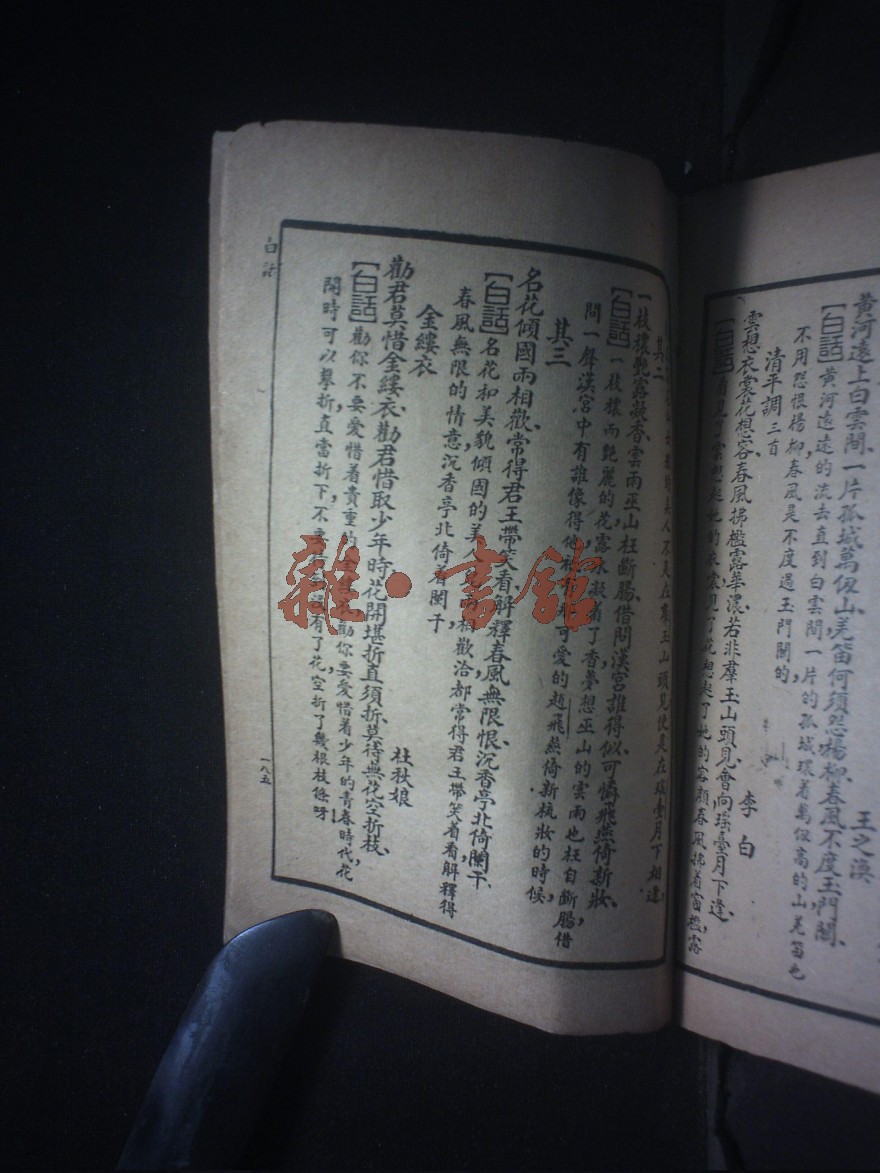 黃河遠上白雲間、一片孤城萬仞山、羌笛何須怨楊柳、春風不度玉門關、
王之渙
【白話】黃河遠遠的流去直到白雲間一片的孤城環着萬仞高的山羌笛也
不用怨恨楊柳春風是不度過玉門關的
清平調三首
李白
雲想衣裳花想容、春風拂檻露華濃、若非羣玉山頭見、會向瑤臺月下逢、
【白話】看見了雲想起她的衣裳見了花想起了她的容顏春風拂着窗檻露
人不是在羣玉山頭見便是在瑤臺月下相逢、
其二
一枝穠艷露凝香、雲雨巫山枉斷腸、借問漢宮誰得似、可憐飛燕倚新妝、
【白話】一枝穠而艷麗的花露水凝着了香夢想巫山的雲雨也枉自斷腸借
問一聲漢宮中有誰像得他 可愛的趙飛燕倚新梳妝的時候
其三
名花傾國兩相歡、常得君王帶笑看、解釋春風無限恨、沉香亭北倚闌干、
【白話】名花和美貌傾國的美人 兩相歡洽都常得君王帶笑着看解釋得
春風無限的情意沉香亭北倚着闌干
金縷衣
杜秋娘
勸君莫惜金縷衣、勸君惜取少年時、花開堪折直須折、莫待無花空折枝、
【白話】勸你不要愛惜着貴重的 勸你要愛惜着少年的青春時代花
開時可以攀折直當折下不要 沒有了花空折了幾根枝條呀
白話
一八五
雜·書館